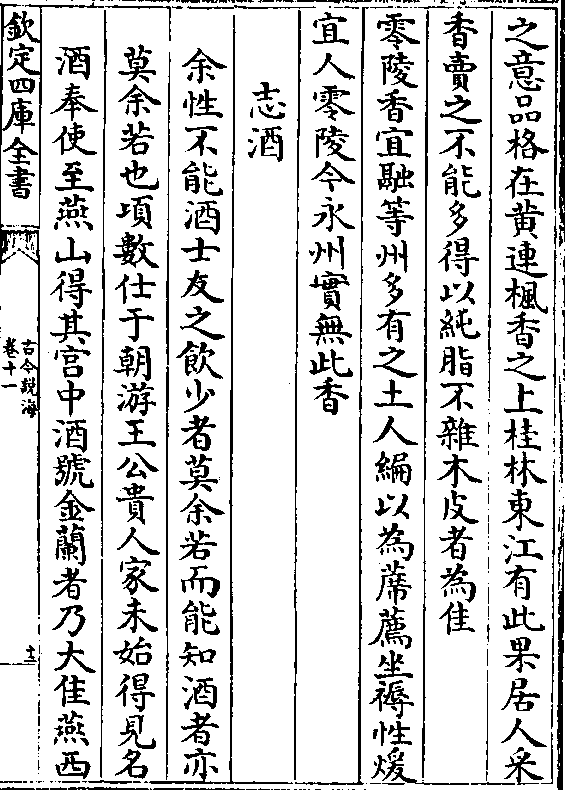 之意品格在黄連楓香之上桂林東江有此果居人采
香賣之不能多得以純脂不雜木皮者為佳
零陵香宜融等州多有之土人編以為蓆薦坐褥性煖
宜人零陵今永州實無此香
志酒
余性不能酒士友之飲少者莫余若而能知酒者亦
莫余若也項數仕于朝游王公貴人家未始得見名
酒奉使至燕山得其宫中酒號金蘭者乃大佳燕西
欽定四庫全書
古今説海
卷十一
十三